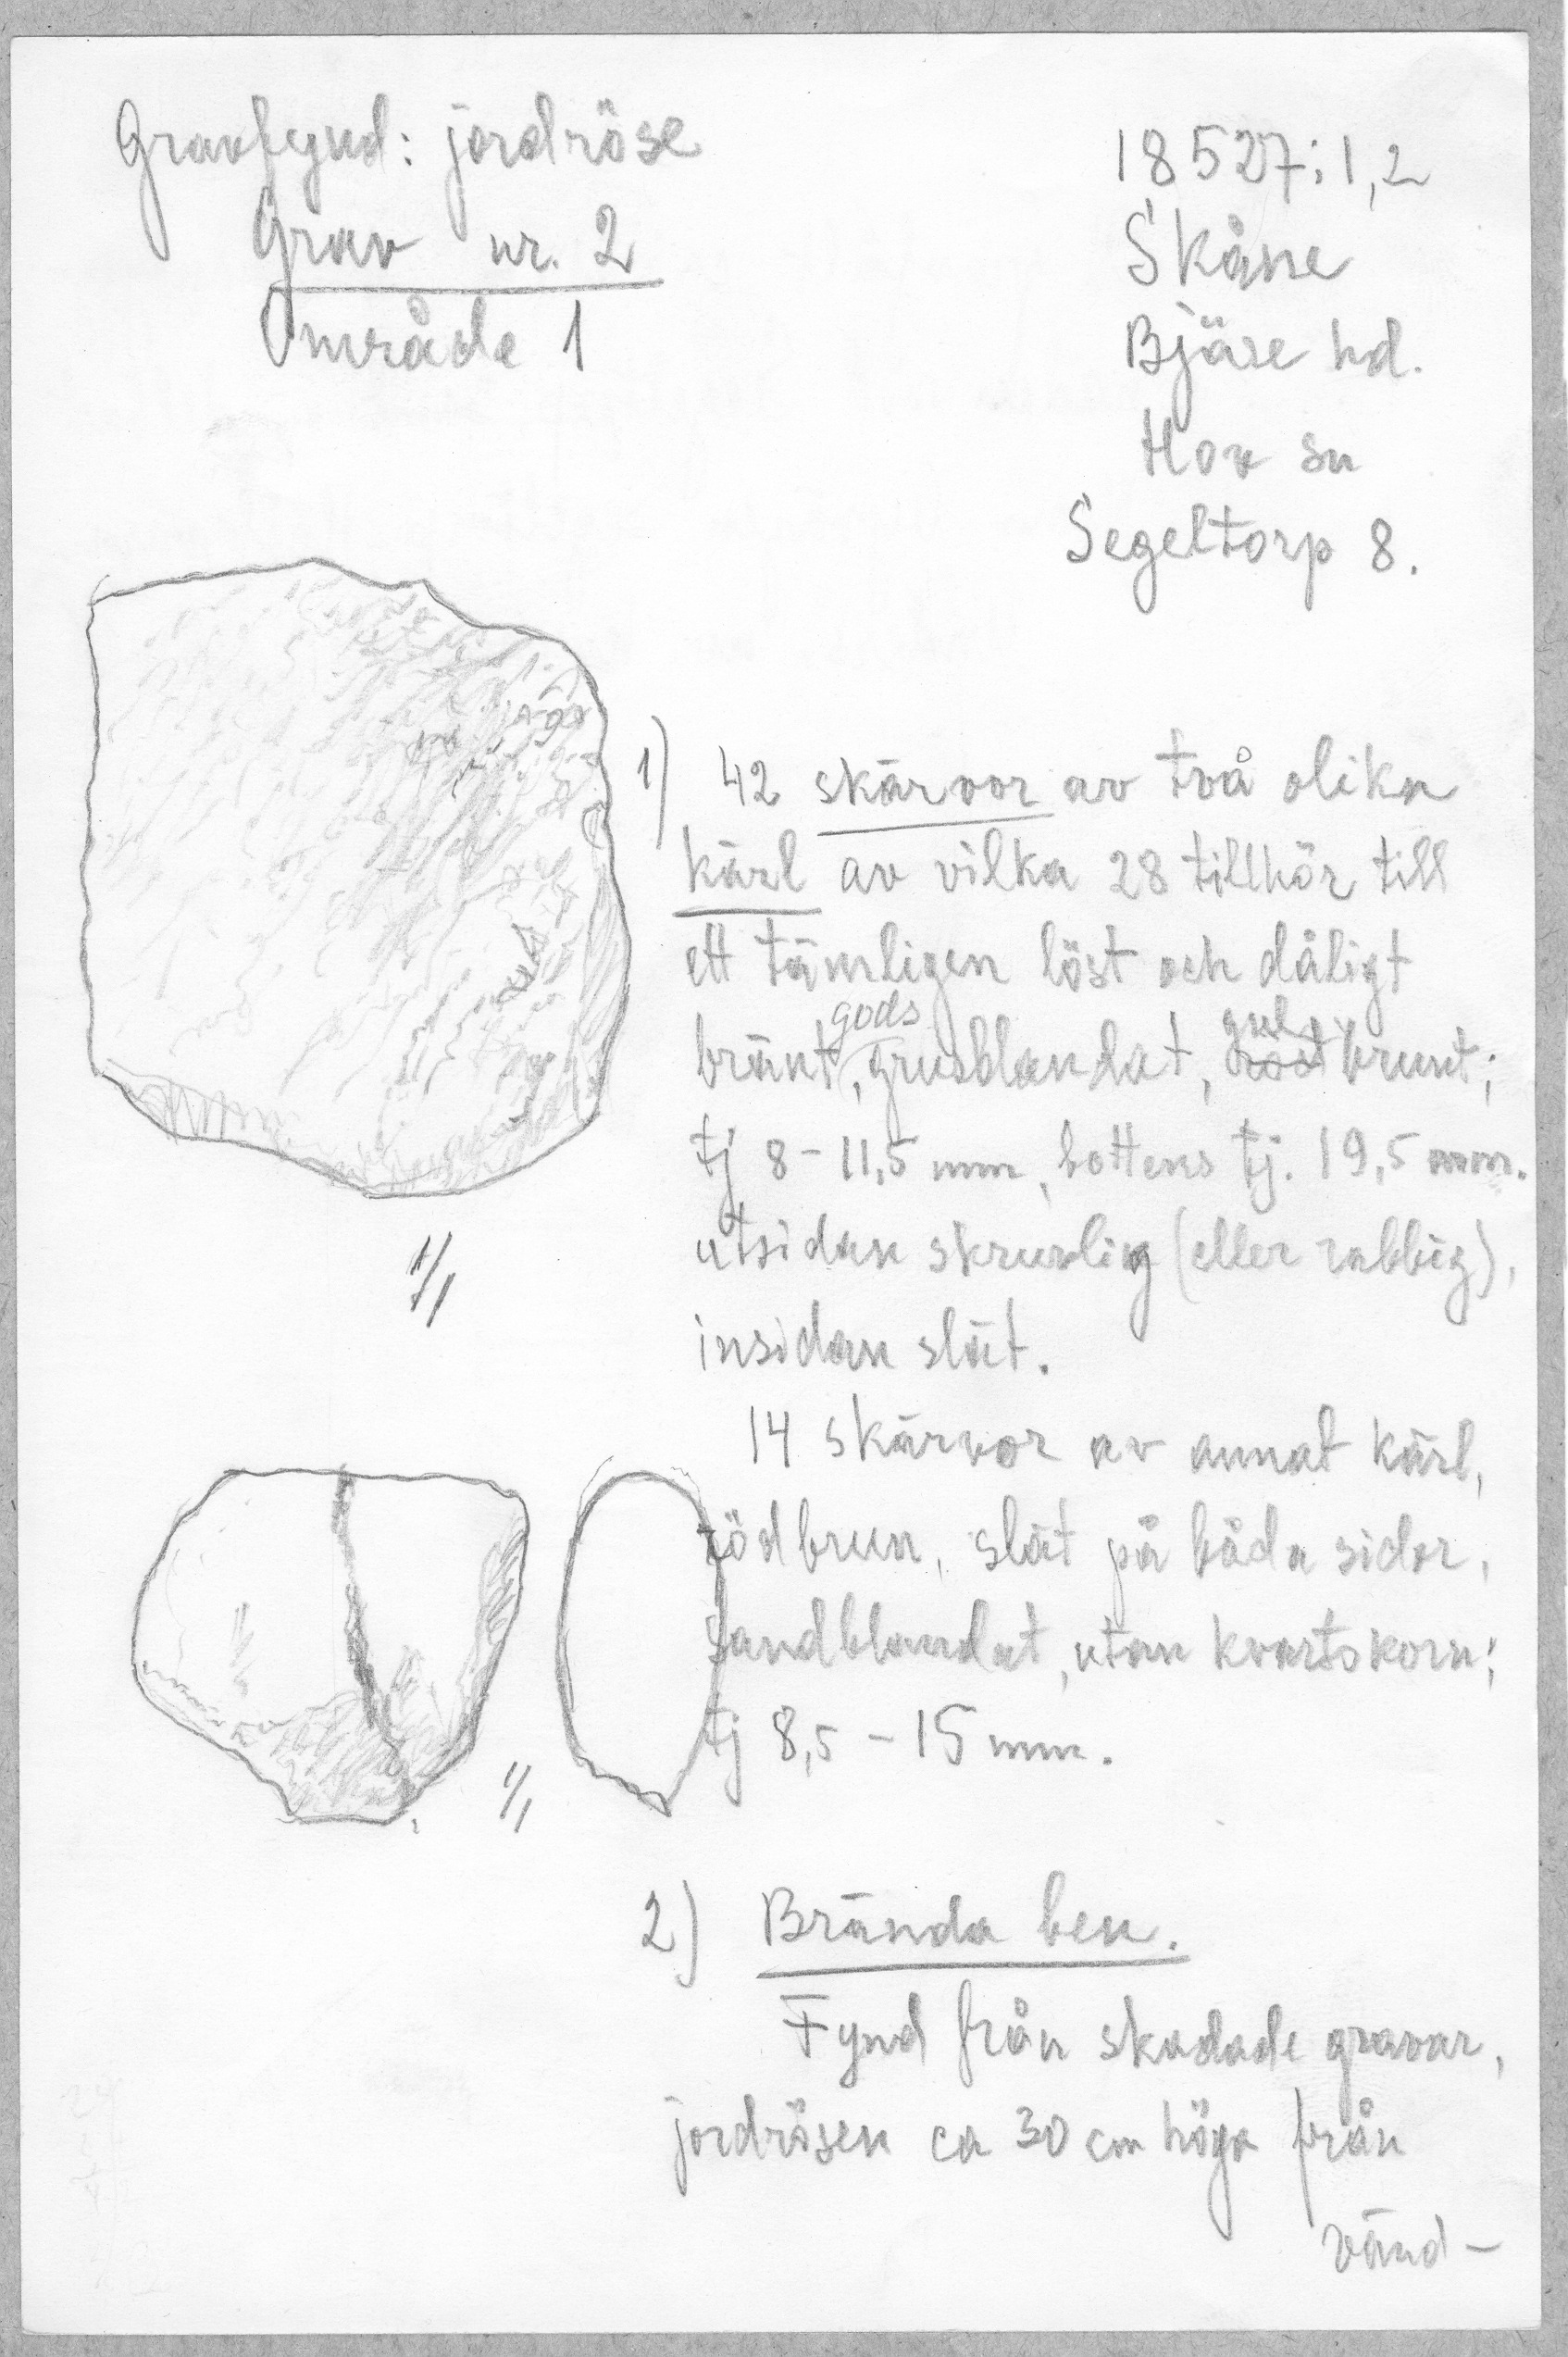 Gravfynd: jordröse
Grav nr. 2
Område 1
18527:1,2
Skåne
Bjäre hd.
Hov sn
Segeltorp 8.
1) 42 skärvor av två olika
kärl av vilka 28 tillhör till
ett tämligen löst och dåligt
bränt gods, grusblandat, gulbrunt;
tj 8-11,5 mm, bottens tj. 19,5 mm.
utsidan skrovlig (eller rabbig),
insidan slät.
1/1
14 skärvor av annat kärl,
rödbrun, slät på båda sidor,
sandblandat, utan kvartskorn;
tj 8,5 - 15 mm.
1/1
2) Brända ben.
Fynd från skadade gravar,
jordrösen ca 30 cm höga från
vänd-